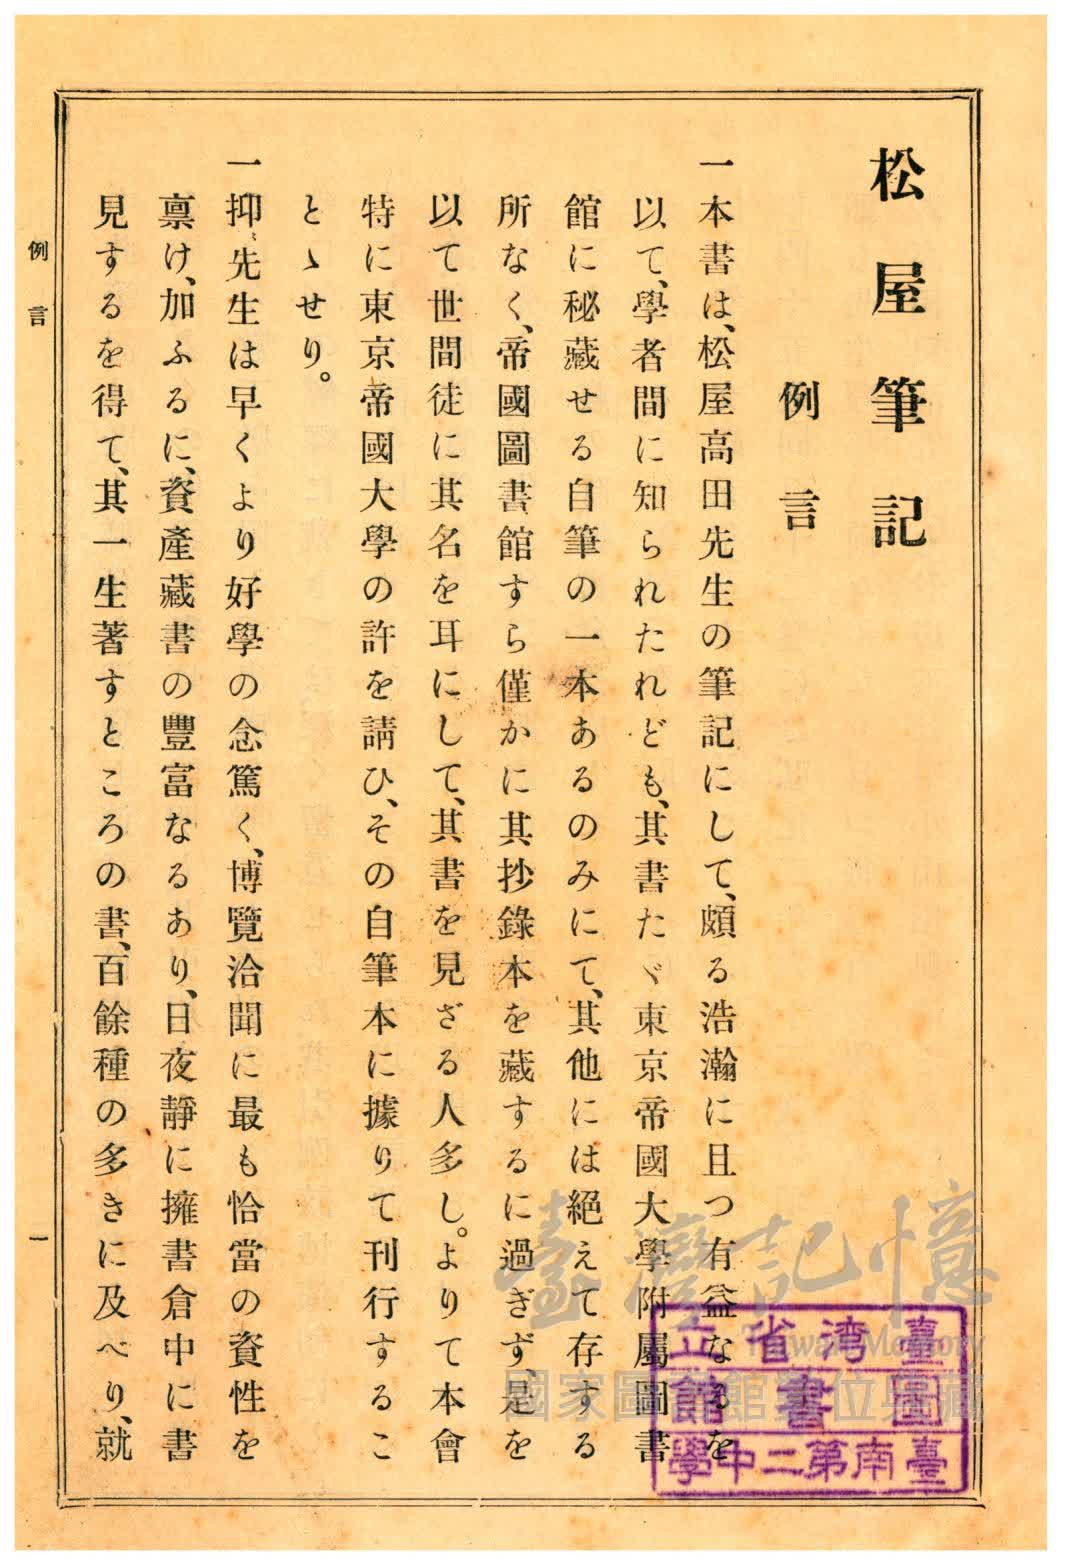 松屋筆記
例言
一本書は、松屋高田先生の筆記にして、頗る浩瀚に且つ有益なるを
以て、學者間に知られたれども、其書たゞ東京帝國大學附屬圖書
館に秘藏せる自筆の一本あるのみにて、其他には絕えて存する
所なく、帝國圖書館すら僅かに其抄錄本を藏するに過ぎず、是を
以て世間徒に其名を耳にして、其書を見ざる人多し。よりて本會
特に東京帝國大學の許を請ひ、その自筆本に據りて刊行するこ
とゝせり。
一抑〻先生は早くより好學の念篤く、博覽洽聞に最も恰當の資性を
禀け、加ふるに、資產藏書の豐富なるあり、日夜靜に擁書倉中に書
見するを得て、其一生著すところの書、百餘種の多きに及べり、就
例言
一
臺灣記憶
Taiwan Memory
國家圖書館數位典藏
臺湾省立
臺南第二中學
圖書館